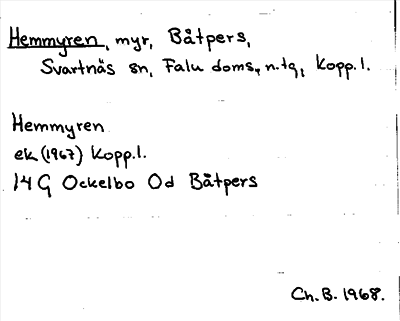 Hemmyren, myr, Båtpers,
Svartnäs sn, Falu doms, n.tg, Kopp.l.
Hemmyren
ek (1967) Kopp.l.
14 G Ockelbo Od Båtpers
Ch. B. 1968.